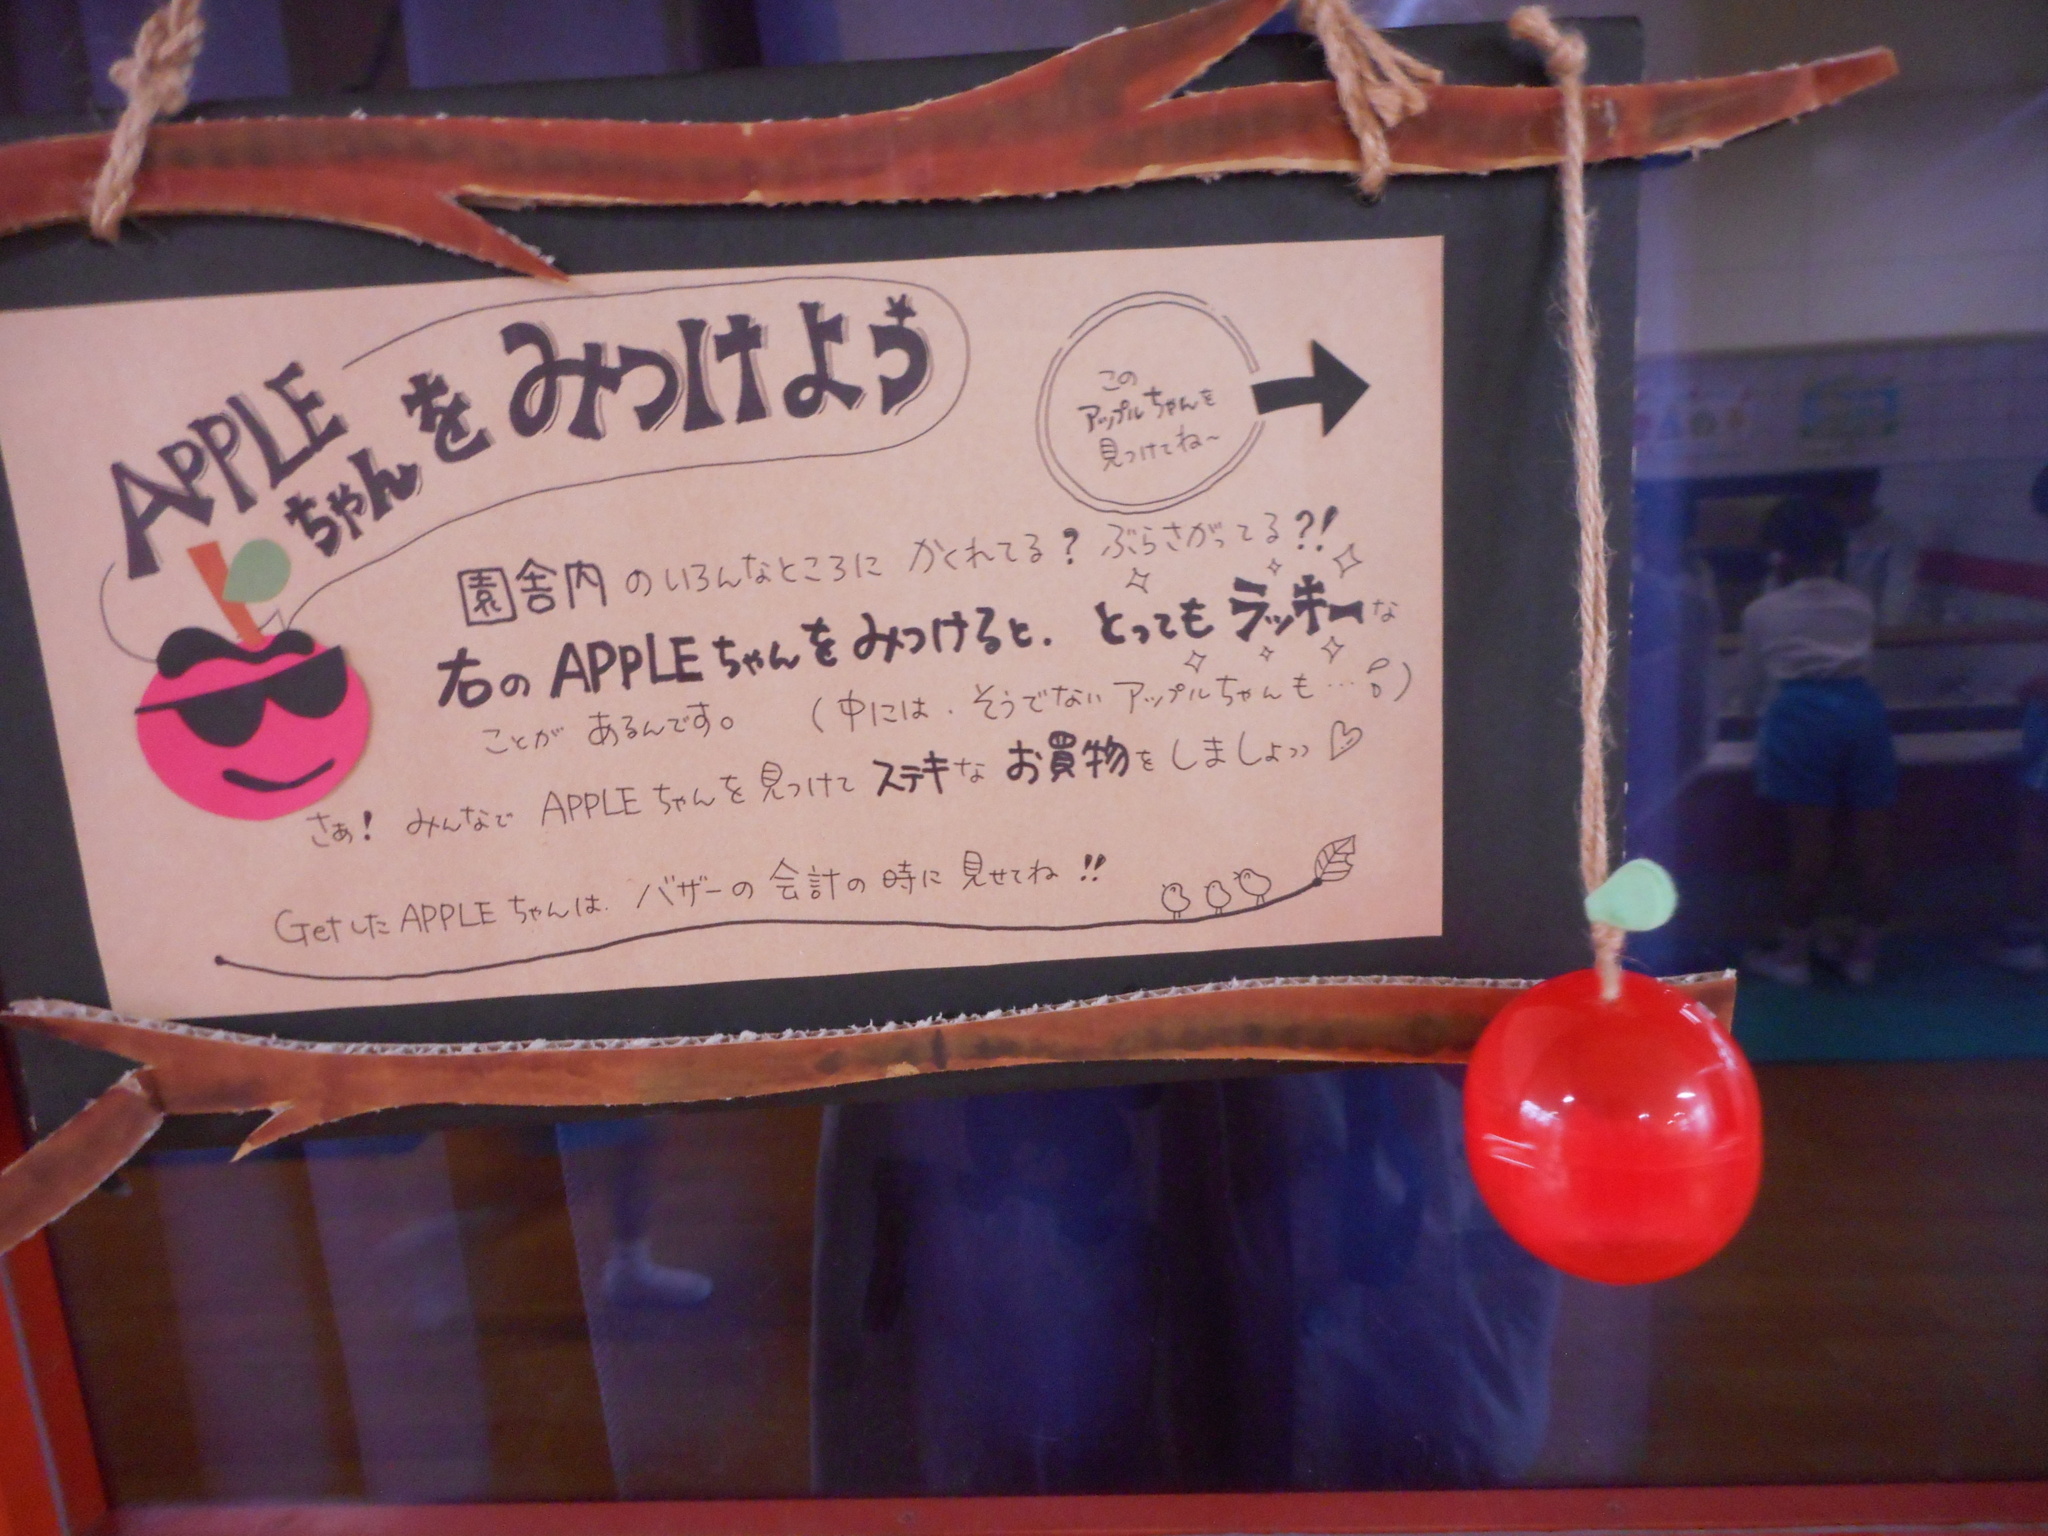 APPLE
ちゃんをみつけよう
この
アップルちゃんを
見つけてね〜
園舎内のいろんなところに かくれてる? ぶらさがってる?!
右のAPPLEちゃんをみつけると、とってもラッキーな
ことが あるんです。 (中には、そうでないアップルちゃんも…)
さぁ! みんなで APPLEちゃんを見つけて ステキな お買物をしましょっ♡
GetしたAPPLEちゃんは、バザーの会計の時に見せてね!!